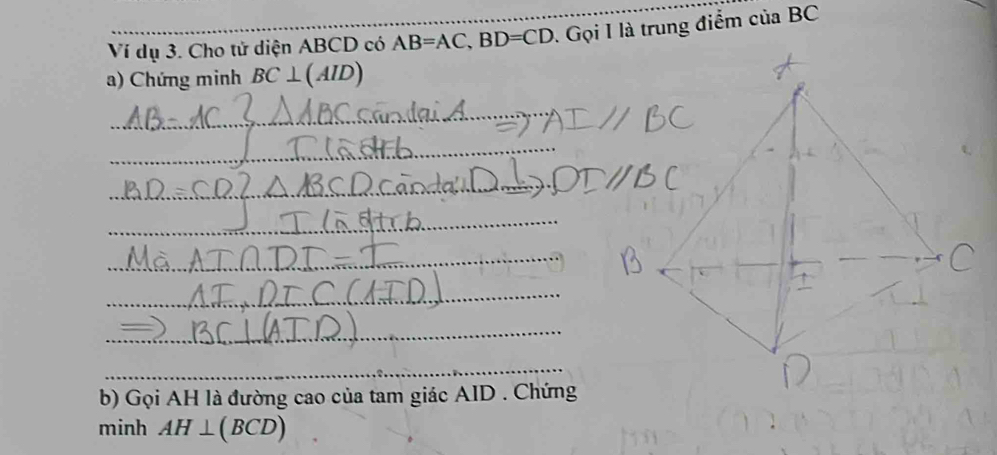 Ví dụ 3. Cho tứ diện ABCD có AB=AC, BD=CD. Gọi I là trung điểm của BC
a) Chứng minh BC ⊥ (AID)
AB = AC } Δ ABC cân tại A => AI // BC
I là
BD = CD } Δ BCD cân tại D => DI // BC
I là
Mà AI ∩ DI = I
AI, DI ⊂ (AID)
=> BC ⊥ (AID)
b) Gọi AH là đường cao của tam giác AID . Chứng
minh AH ⊥ (BCD)
A
B
I
C
D